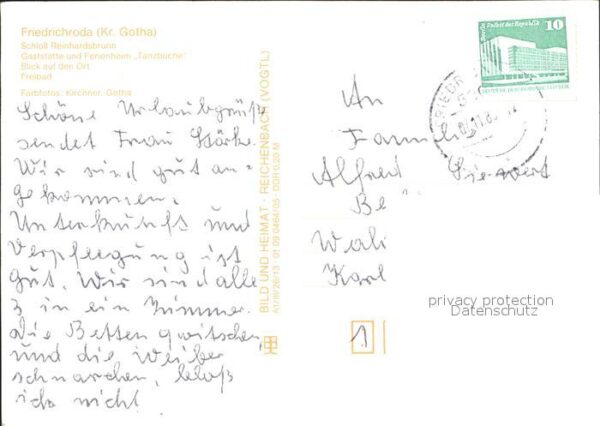 Friedrichroda (Kr. Gotha)
Schloß Reinhardsbrunn
Gaststätte und Ferienheim „Tanzbuche“
Blick auf den Ort
Freibad
Farbfotos: Kirchner, Gotha
Schöne Urlaubgrüße
sendet Frau Stärke.
Wir sind gut an-
gekommen.
Unterkunft und
Verpflegung ist
gut. Wir sind alle
3 in ein Zimmer.
Die Betten quitschen,
und die Weiber
schnarchen, bloß
ich nicht
BILD UND HEIMAT · REICHENBACH (VOGTL)
A1/III/26/13 · 01 09 0464/05 · DDR 0,20 M
10
Berlin, Palast der Republik
An
Familie
Alfred Siewert
Be
Wali
Karl
privacy protection
Datenschutz
1